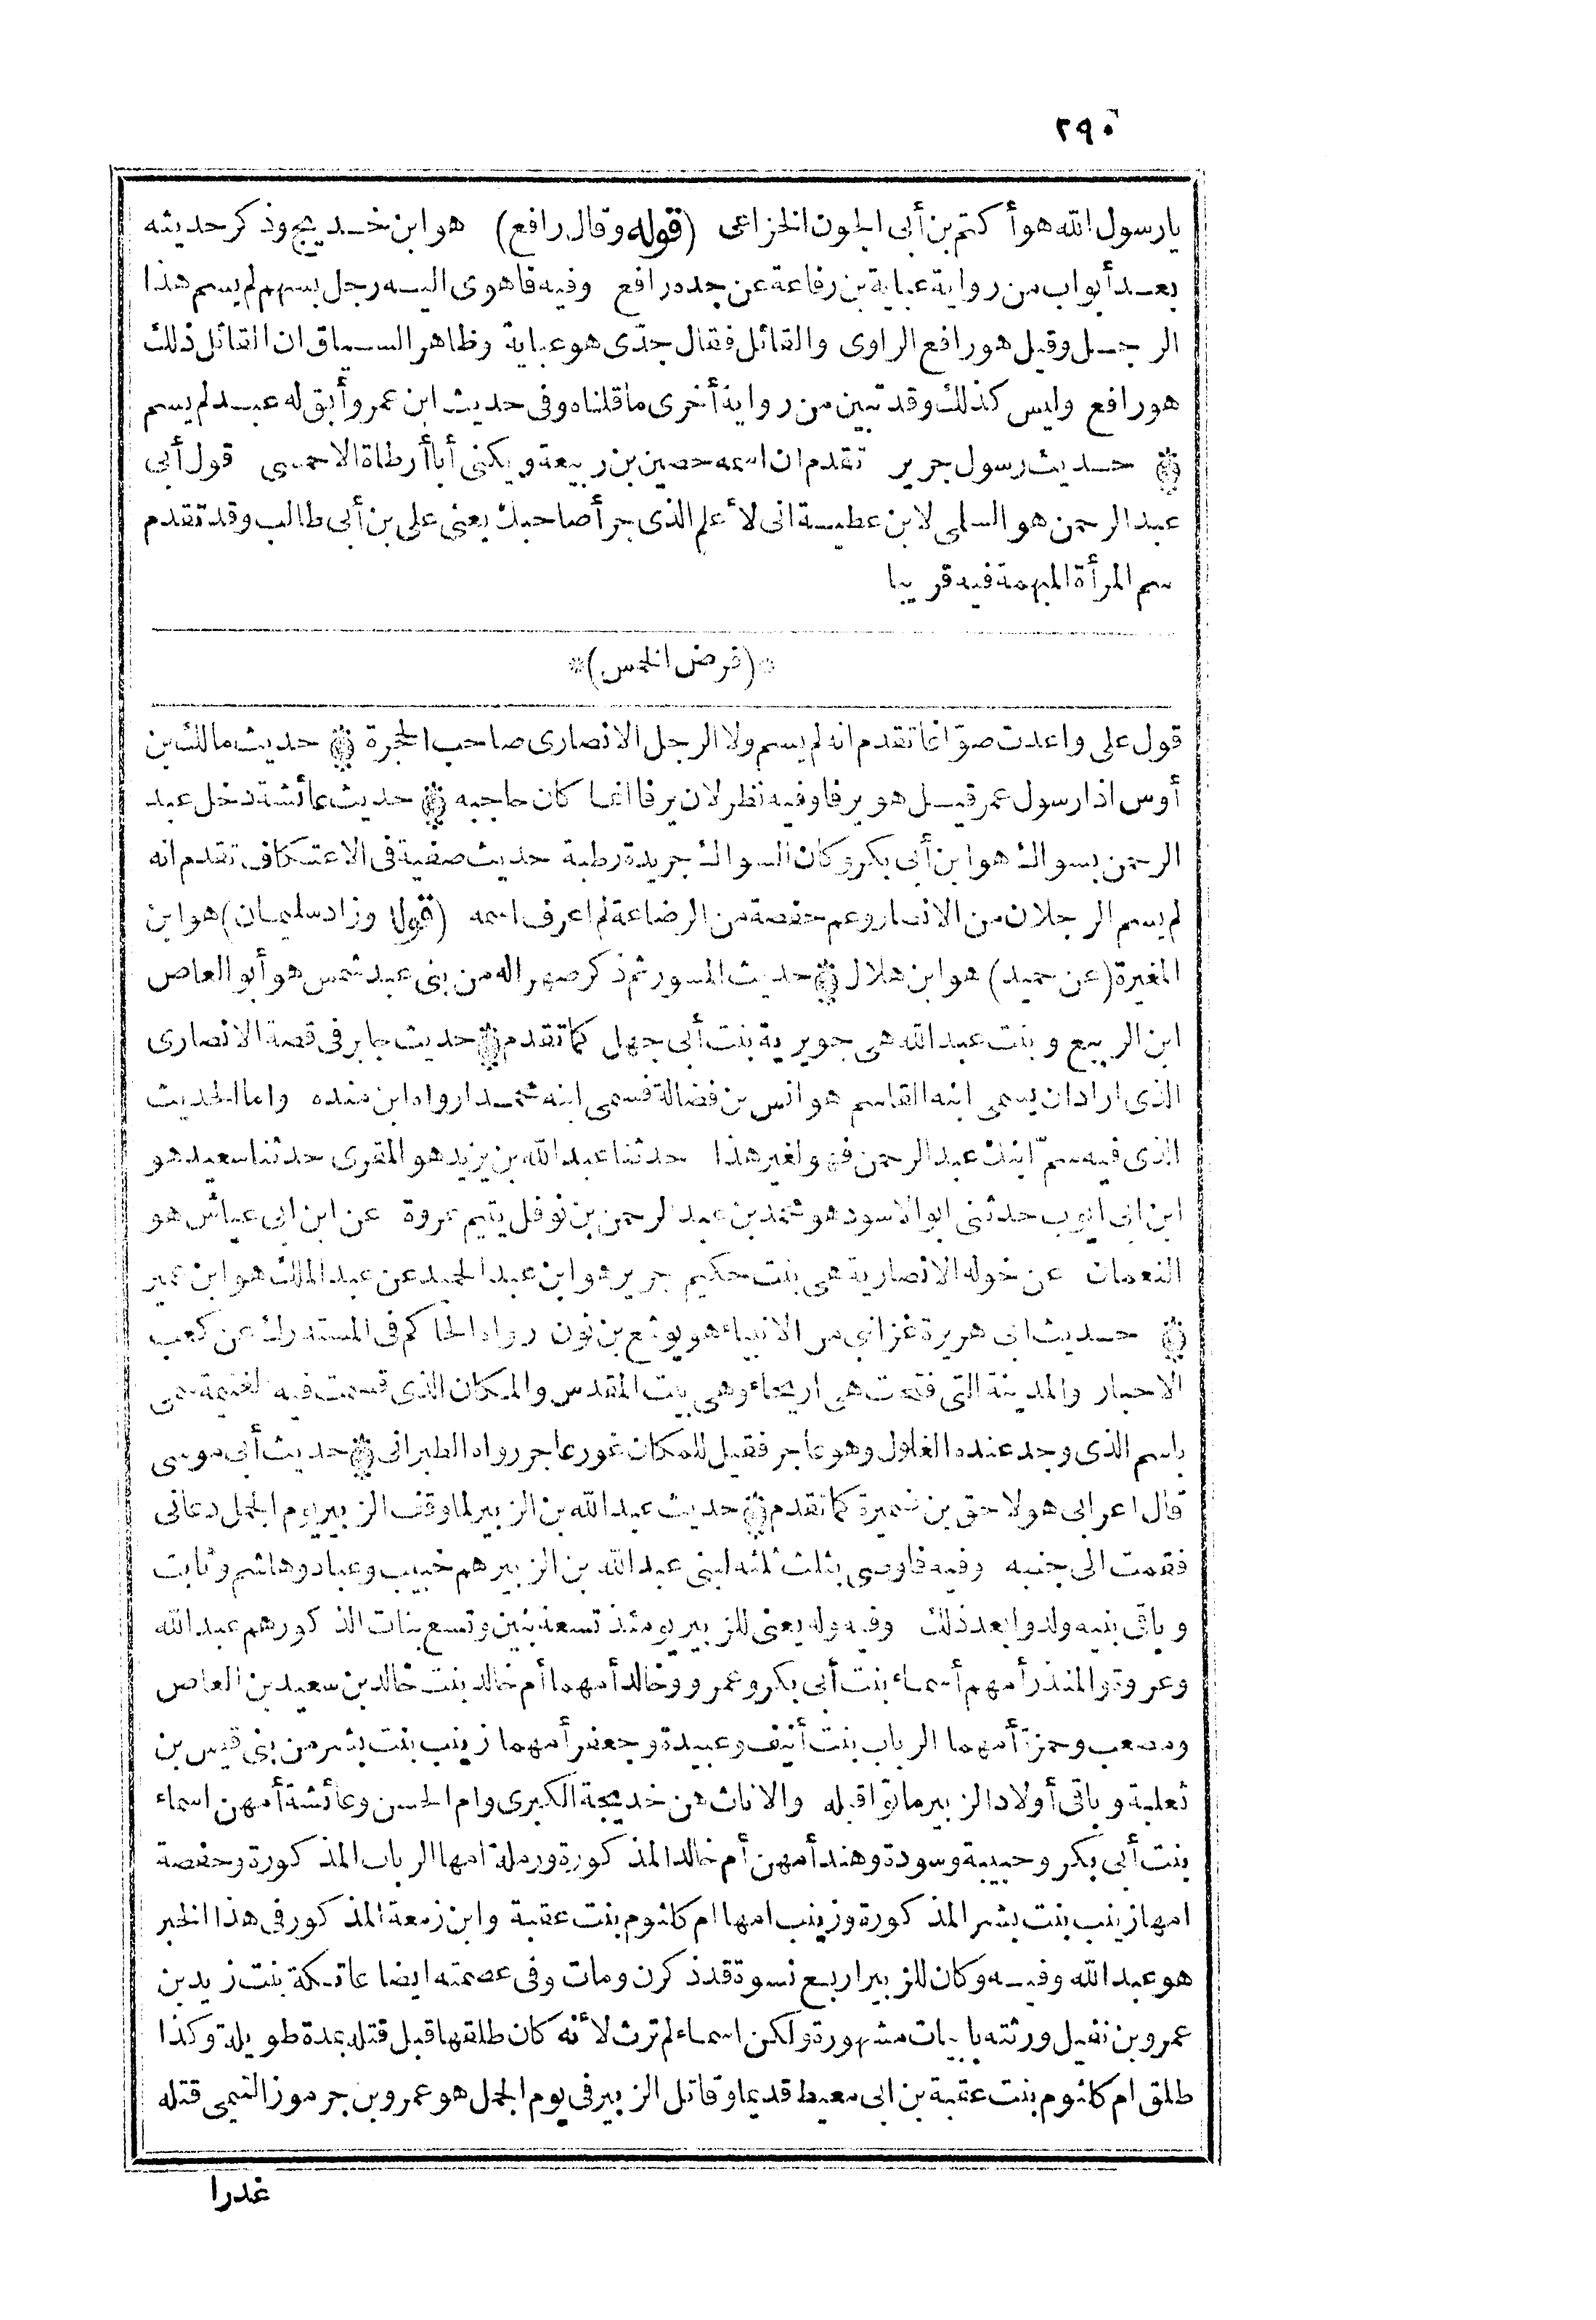 ٢٩٠
يارسول الله هو أكتم بن أبى الجون الخزاعى (قوله وقال رافع) هو ابن خديج وذكر حديثه
بعد أبواب من رواية عباية بن رفاعة عن جده رافع وفيه فاهوى اليه رجل بسهم لم يسم هذا
الرجل وقيل هو رافع الراوى والقائل فقال جدّى هو عباية وظاهر السياق ان القائل ذلك
هو رافع وليس كذلك وقد تبين من رواية أخرى ما قلناه وفى حديث ابن عمر وأبق له عبد لم يسم
حديث رسول جرير تقدم ان اسمه حصين بن ربيعة ويكنى أبا أرطاة الاحمسى قول أبى
عبد الرحمن هو السلمى لابن عطية انى لأعلم الذى جرأ صاحبك يعنى على بن أبى طالب وقد تقدم
سم المرأة المبهمة فيه قريبا
*(فرض الخمس)*
قول على واعدت صوّاغا تقدم انه لم يسم ولا الرجل الانصارى صاحب الحجرة حديث مالك بن
أوس اذا رسول عمر قيل هو يرفا وفيه نظر لان يرفا انما كان حاجبه حديث عائشة دخل عبد
الرحمن بسواك هو ابن أبى بكر وكان السواك جريدة رطبة حديث صفية فى الاعتكاف تقدم انه
لم يسم الرجلان من الانصار وعم حفصة من الرضاعة لم اعرف اسمه (قوله وزاد سليمان) هو ابن
المغيرة (عن حميد) هو ابن هلال حديث المسور ثم ذكر صهرا له من بنى عبد شمس هو أبو العاص
ابن الربيع وبنت عبد الله هى جويرية بنت أبى جهل كما تقدم حديث جابر فى قصة الانصارى
الذى اراد ان يسمى ابنه القاسم هو انس بن فضالة فسمى ابنه محمدا رواه ابن منده واما الحديث
الذى فيه سمّ ابنك عبد الرحمن فهو لغير هذا حدثنا عبد الله بن يزيد هو المقرى حدثنا سعيد هو
ابن ابى ايوب حدثنى ابو الاسود هو محمد بن عبد الرحمن بن نوفل يتيم عروة عن ابن ابى عياش هو
النعمان عن خوله الانصارية هى بنت حكيم جرير هو ابن عبد الحميد عن عبد الملك هو ابن عمير
حديث ابى هريرة غزا نبى من الانبياء هو يوشع بن نون رواه الحاكم فى المستدرك عن كعب
الاحبار والمدينة التى فتحت هى اريحاء وهى بيت المقدس والمكان الذى قسمت فيه الغنيمة سمى
باسم الذى وجد عنده الغلول وهو عاجر فقيل للمكان غور عاجر رواه الطبرانى حديث أبى موسى
قال اعرابى هو لاحق بن ضميرة كما تقدم حديث عبد الله بن الزبير لما وقف الزبير يوم الجمل دعانى
فقمت الى جنبه وفيه فاوصى بثلث ثلثه لبنى عبد الله بن الزبير هم خبيب وعباد وهاشم وثابت
وباقى بنيه ولدوا بعد ذلك وفيه وله يعنى للزبير يومئذ تسعة بنين وتسع بنات الذكور هم عبد الله
وعروة والمنذر أمهم أسماء بنت أبى بكر وعمرو وخالد أمهما أم خالد بنت خالد بن سعيد بن العاص
ومصعب وحمزة أمهما الرباب بنت أنيف وعبيدة وجعفر أمهما زينب بنت بشر من بنى قيس بن
ثعلبة وباقى أولاد الزبير ماتوا قبله والاناث هن خديجة الكبرى وام الحسن وعائشة أمهن اسماء
بنت أبى بكر وحبيبة وسودة وهند أمهن أم خالد المذكورة ورملة امها الرباب المذكورة وحفصة
امها زينب بنت بشر المذكورة وزينب امها ام كلثوم بنت عقبة وابن زمعة المذكور فى هذا الخبر
هو عبد الله وفيه وكان للزبير اربع نسوة قد ذكرن ومات وفى عصمته ايضا عاتكة بنت زيد بن
عمرو بن نفيل ورثته بابيات مشهورة ولكن اسماء لم ترث لأنه كان طلقها قبل قتله بمدة طويلة وكذا
طلق ام كلثوم بنت عقبة بن ابى معيط قديما وقاتل الزبير فى يوم الجمل هو عمرو بن جرموز التميمى قتله
غدرا